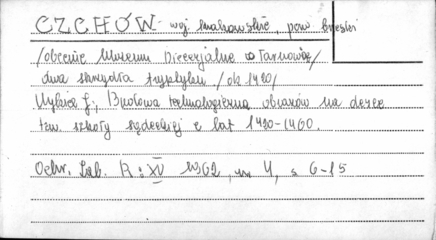 CZCHÓW - woj. krakowskie, pow. brzeski
/obecnie Muzeum Diecezjalne w Tarnowie/
dwa skrzydła tryptyku /ok 1420/
Wybicz J., Budowa technologiczna obrazów na desce
tzw. szkoły sądeckiej z lat 1420-1460.
Ochr. Zab. R: XV 1962, nr 4, s 6-15